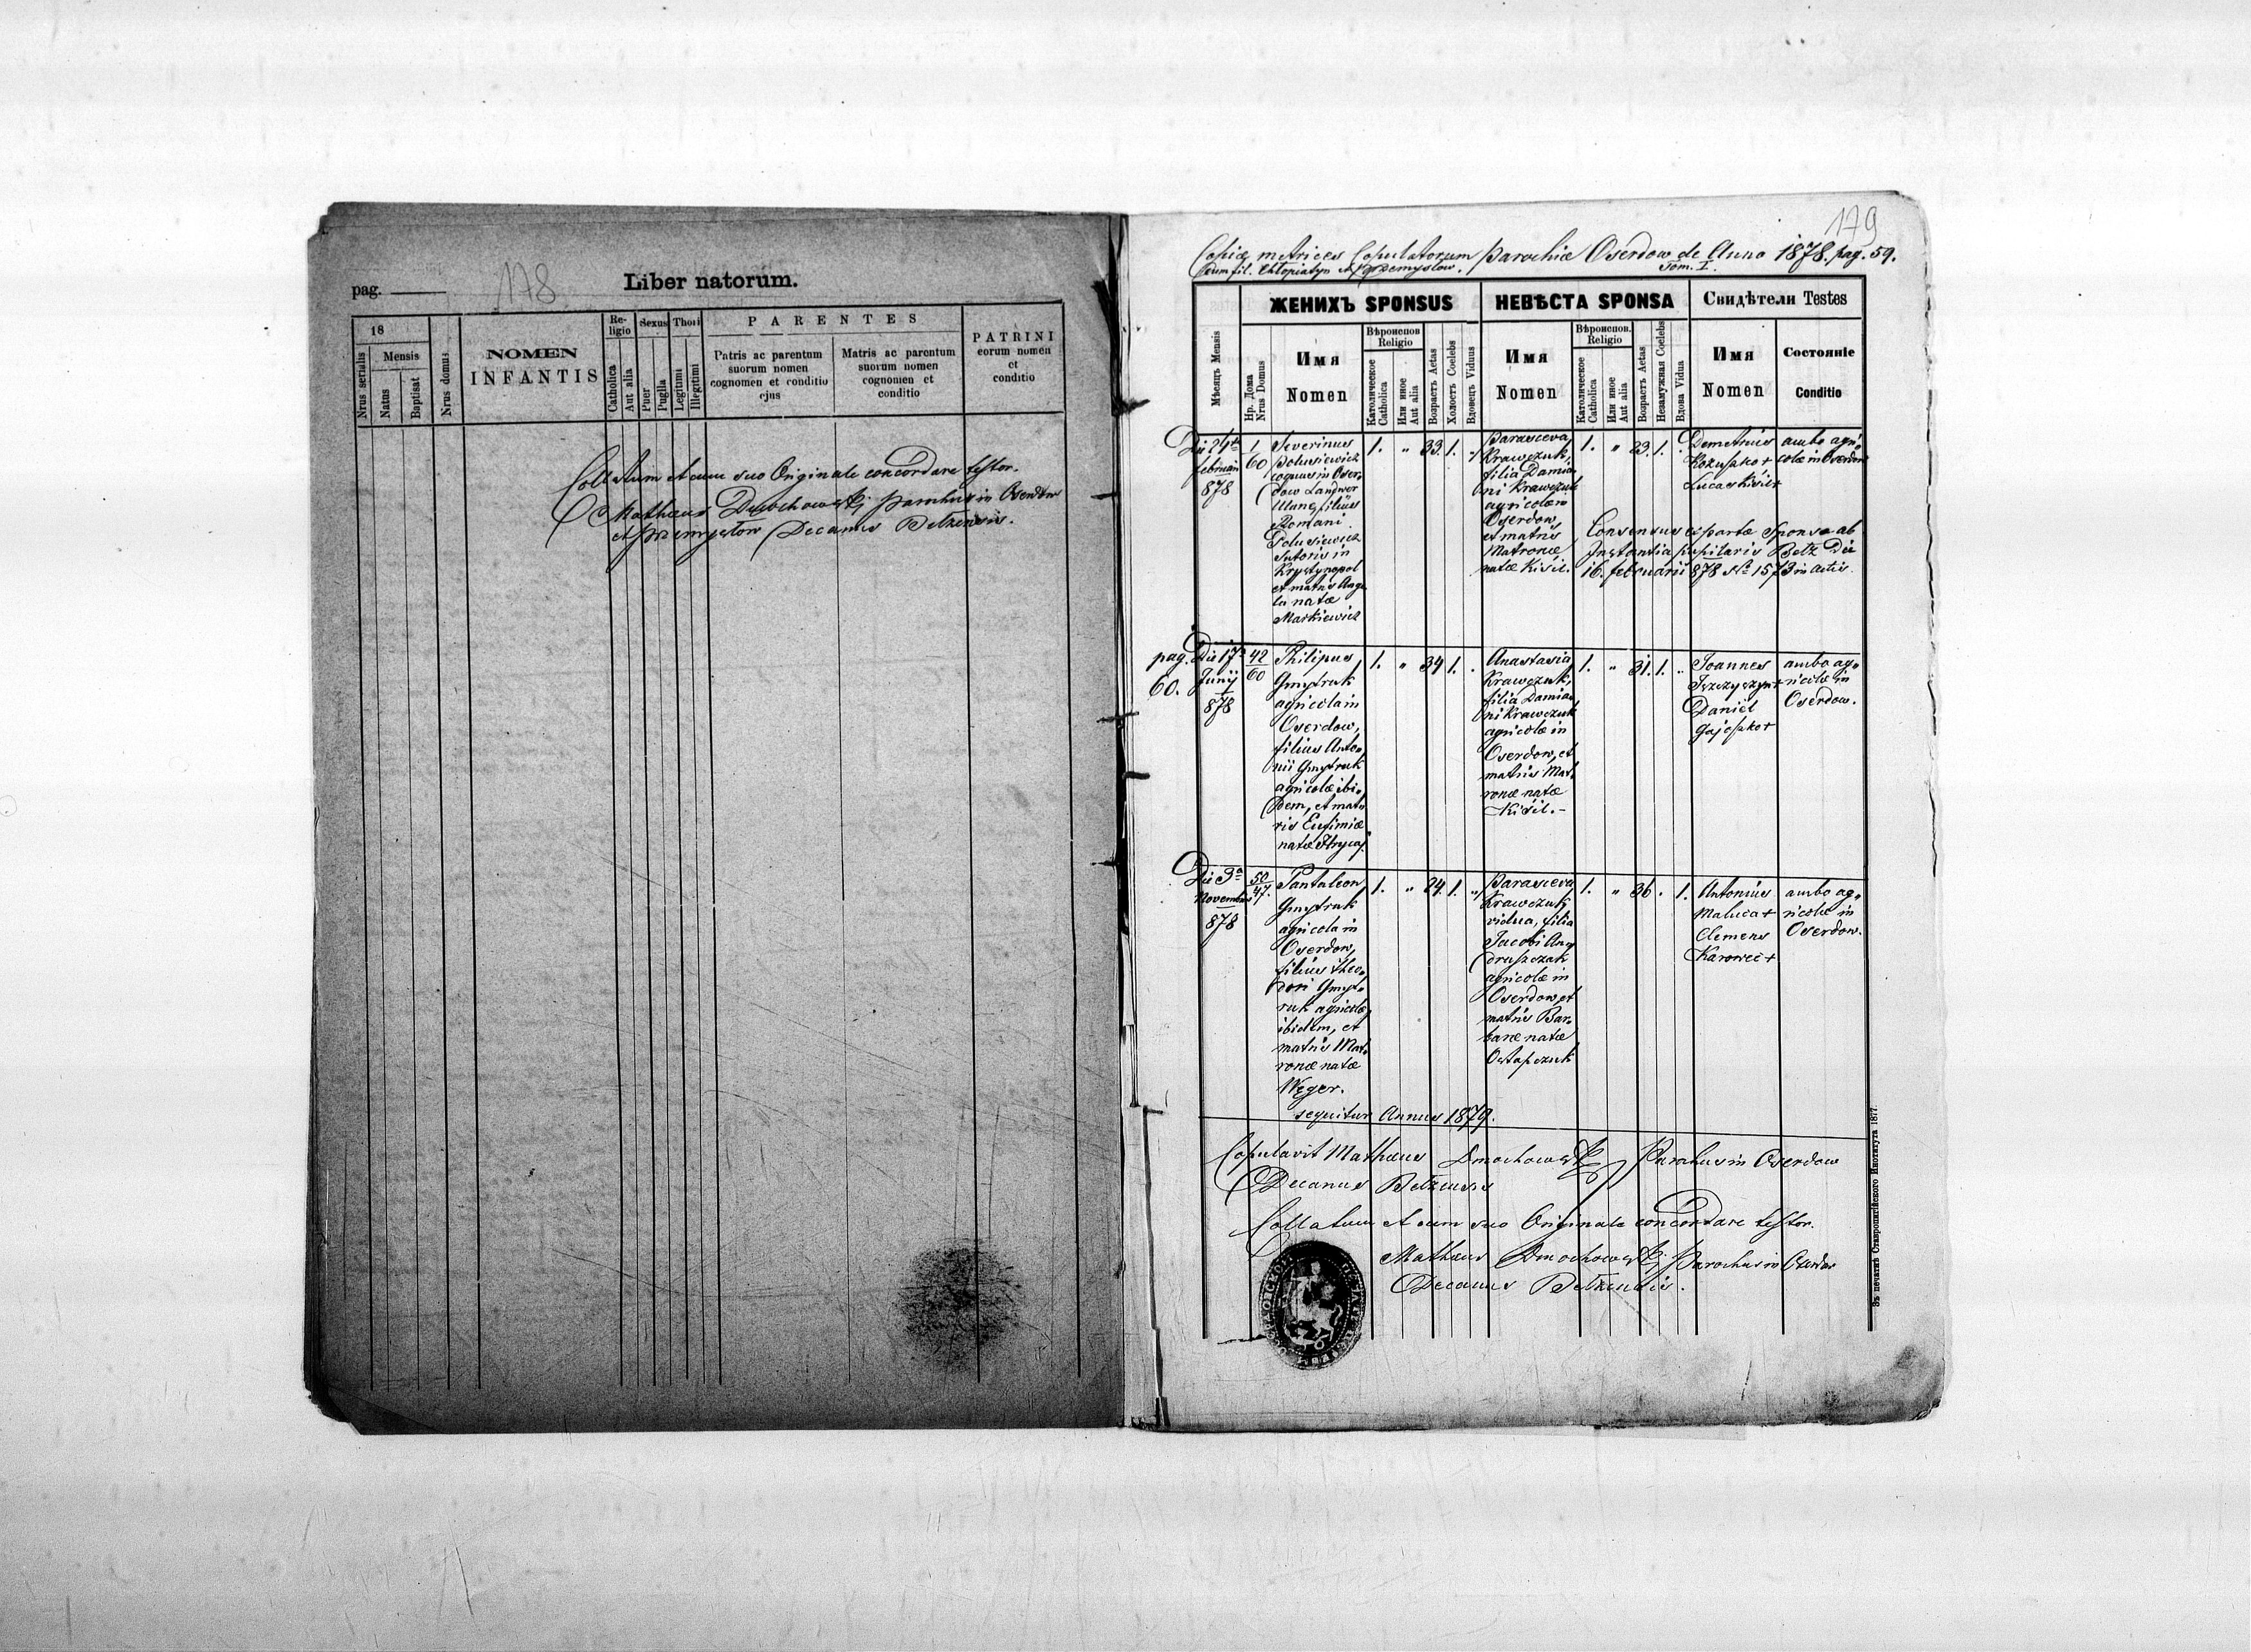 178
Liber natorum.
pag.
18
Nrus serialis
Mensis
Natus
Baptisat
Nrus domus
NOMEN
INFANTIS
Re-
ligio
Catholica
Aut alia
Sexus
Puer
Puella
Thori
Legitimi
Illegitimi
PARENTES
Patris ac parentum
suorum nomen
cognomen et conditio
ejus
Matris ac parentum
suorum nomen
cognomen et
conditio
PATRINI
eorum nomen
et
conditio
Collatum et cum suo Originale concordare testor.
Mathaus Dmochowski parochus in Oserdow
et Przemysłow Decanus Belzensis.
179
Copia metrices Copulatorum parochiæ Oserdow de Anno 1878. pag. 59.
cum fil. Chłopiatyn et Przemysłow. Tom. I.
Мѣсяцъ Mensis
ЖЕНИХЪ SPONSUS
Нр. Дома
Nrus Domus
Имя
Nomen
Вѣроиспов
Religio
Католическое
Catholica
Или иное
Aut alia
Возрастъ Aetas
Холостъ Coelebs
Вдовецъ Viduus
НЕВѢСТА SPONSA
Имя
Nomen
Вѣроиспов.
Religio
Католическое
Catholica
Или иное
Aut alia
Возрастъ Aetas
Незамужная Coelebs
Вдова Vidua
Свидѣтели Testes
Имя
Nomen
Состояніе
Conditio
Die 24ta
februarii
878
1
60
Severinus
Polusiewicz
coquus in Oser„
dow Landwer
Ulane, filius
Romani
Polusiewicz
sutoris in
Krystynopol
et matris Ange
la natæ
Markiewicz
1. „ 33. 1. „
Parasceva
Krawczuk,
filia Damia„
ni Krawczuk
agricolæ in
Oserdow,
et matris
Matronæ
natæ Kisil.
1. „ 23. 1.
Demetrius
Kozuszko +
Lucas Kisil +
ambo agri„
colæ in Oserdow
Consensus ex parte Sponsæ ab
Instantia pupilaris Belz Die
16. februarii 878 No 1573 in actis.
pag.
60.
Die 17a
Junij
878
42
60
Philipus
Gmytruk
agricola in
Oserdow,
filius Anto„
nii Gmytruk
agricolæ ibi„
dem, et mat„
ris Eufimiæ
natæ Hrycaj.
1. „ 34 1. .
Anastasia
Krawczuk,
filia Damia„
ni Krawczuk
agricolæ in
Oserdow, et
matris Mat„
ronæ natæ
Kisil.-
1. „ 31. 1. „
Joannes
Daniel
Gajoszko +
ambo ag„
ricolæ in
Oserdow.
Die 3a
Novembris
878
50
47.
Pantaleon
Gmytruk
agricola in
Oserdow,
filius Theo„
dori Gmyt„
ruk agricolæ
ibidem, et
matris Mat„
ronæ natæ
Weger.
1. „ 24. 1. „
Parasceva
Krawczuk,
vidua, filia
Jacobi An„
druszczak
agricolæ in
Oserdow, et
matris Bar„
baræ natæ
Ostapczuk
1. „ 36 . 1.
Antonius
Maluca +
Clemens
Karowec +
ambo ag„
ricolæ in
Oserdow.
sequitur Annus 1879.
Copulavit Mathaus Dmochowski Parochus in Oserdow
Decanus Belzensis
Collatum et cum suo Originale concordare testor.
Mathaus Dmochowski parochus in Oserdow
Decanus Belzensis.
Въ печатнѣ Ставропигійского Института 1877.